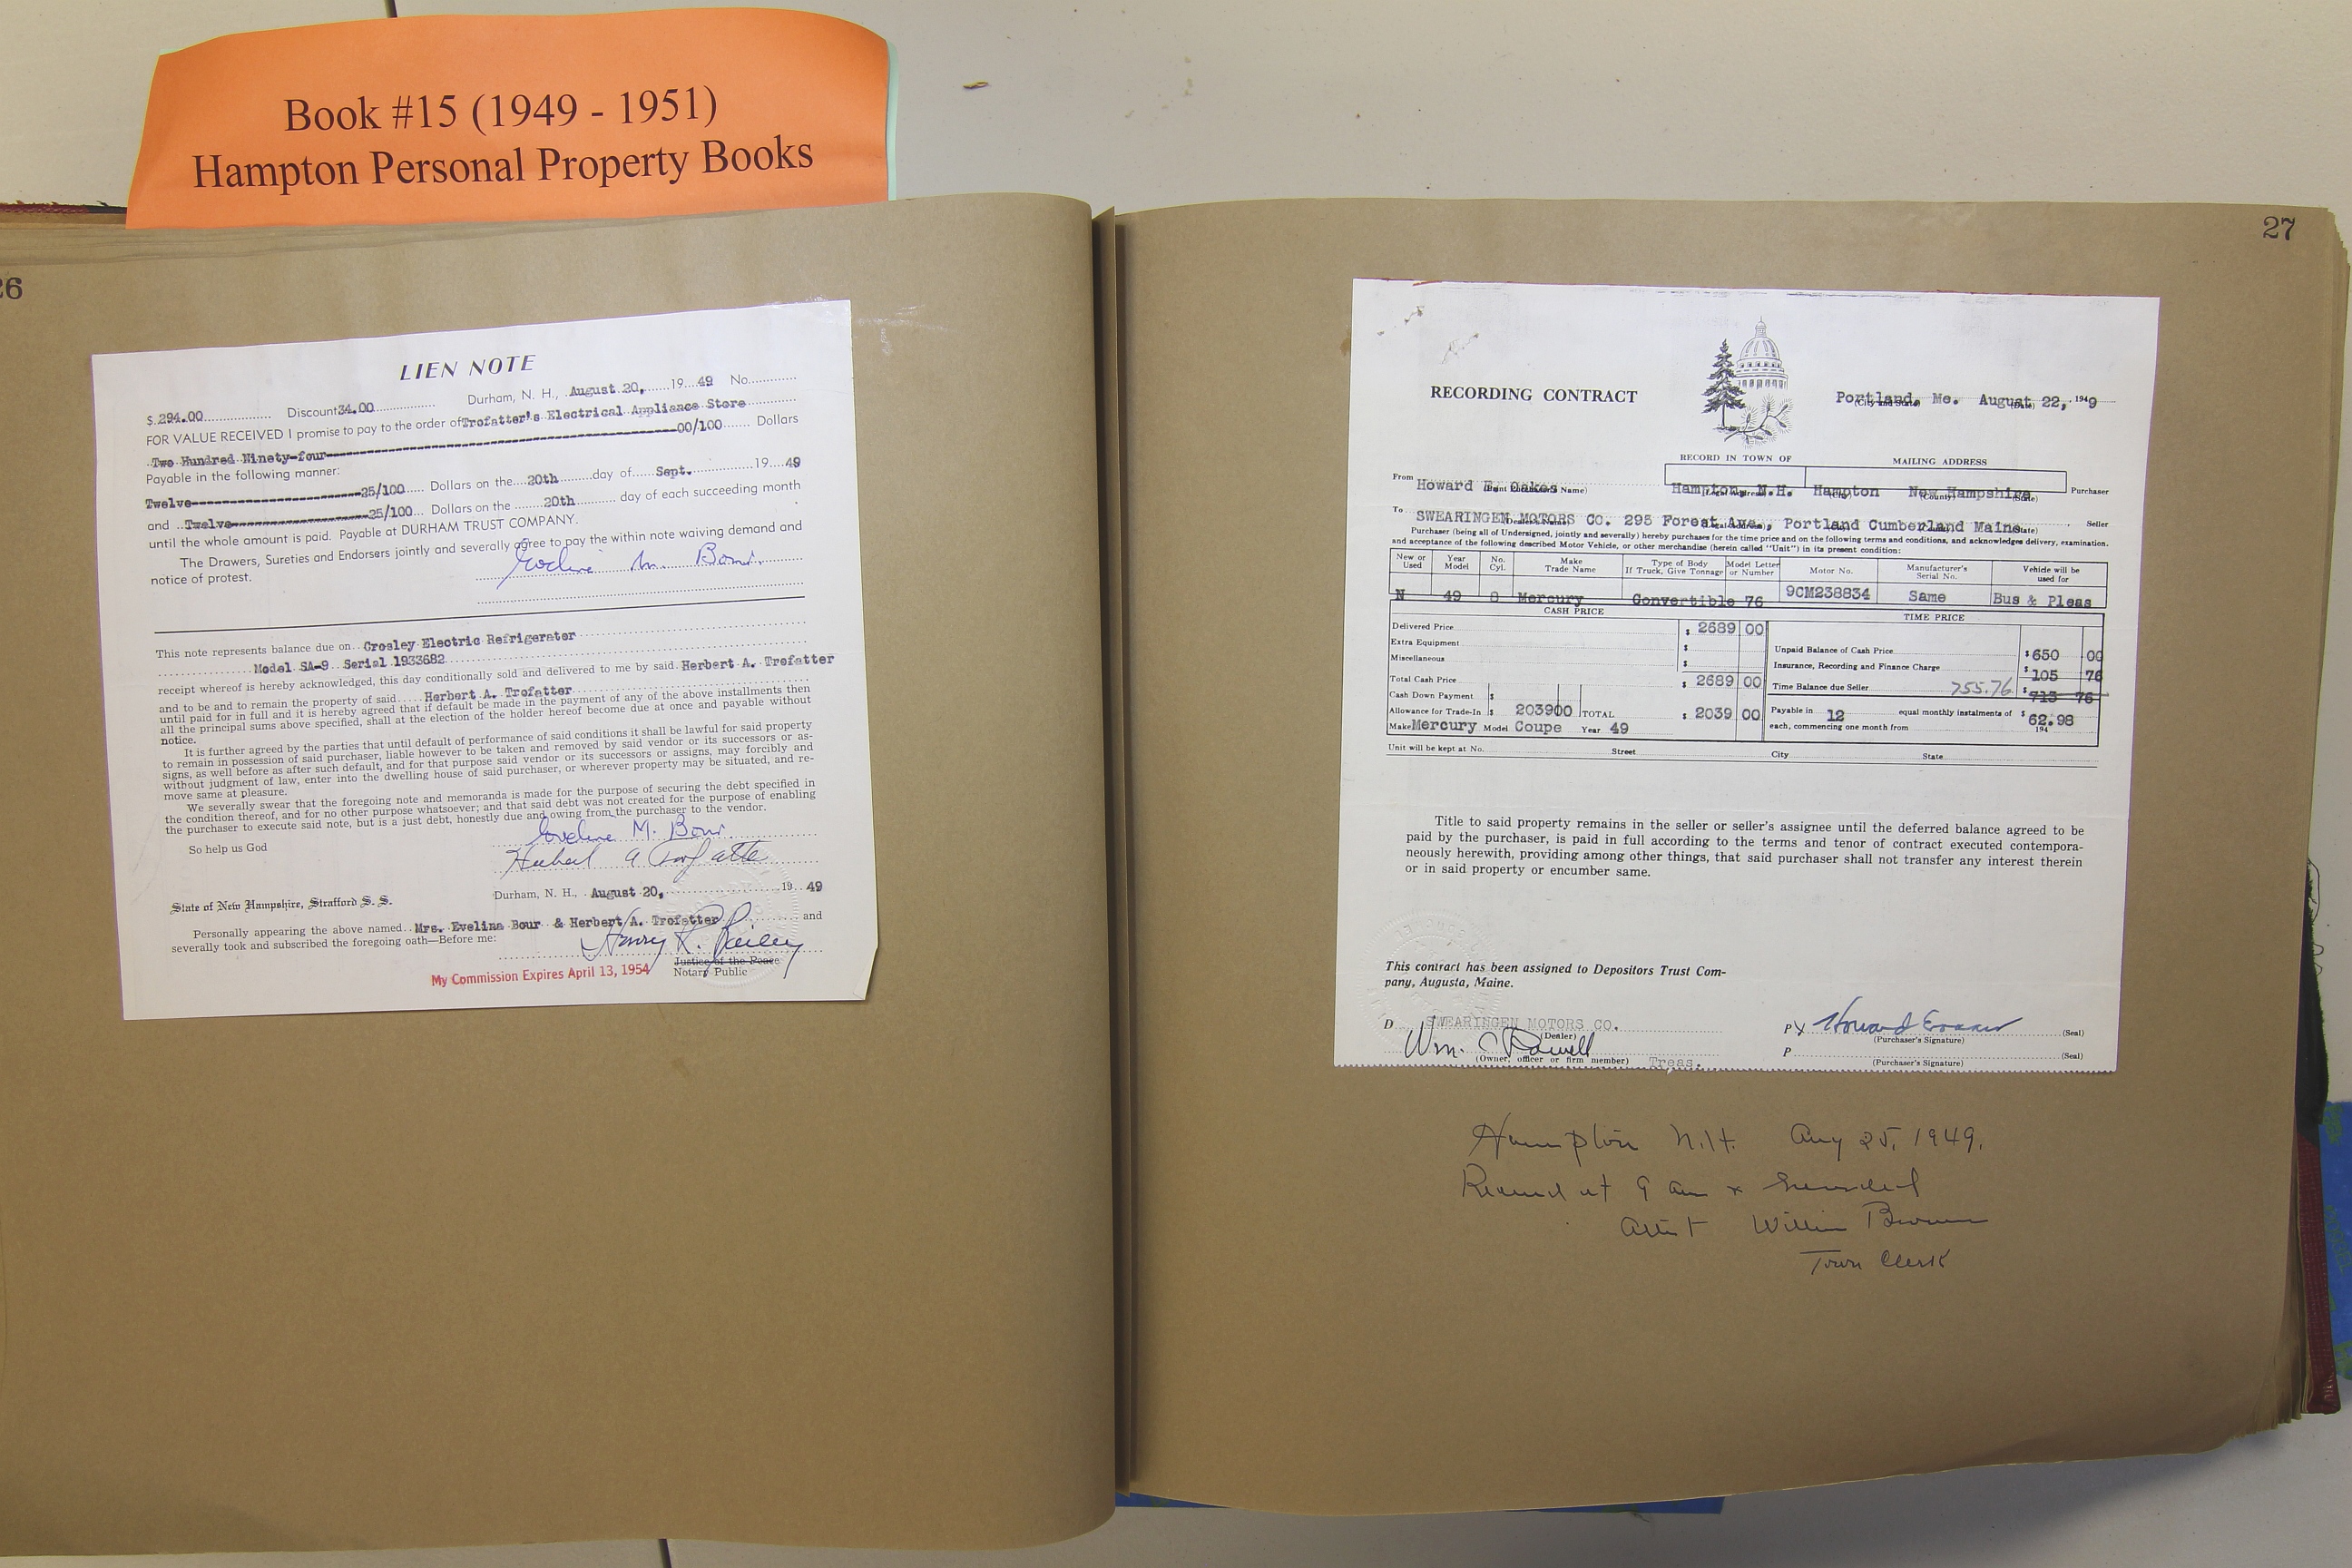 Book #15 (1949 - 1951)
Hampton Personal Property Books
26
LIEN NOTE
$ 294.00 Discount 34.00 Durham, N. H., August 20, 19 49 No.
FOR VALUE RECEIVED I promise to pay to the order of Trofatter's Electrical Appliance Store
Two Hundred Ninety-four 00/100 Dollars
Payable in the following manner:
Twelve 25/100 Dollars on the 20th day of Sept. 19 49
and Twelve 25/100 Dollars on the 20th day of each succeeding month
until the whole amount is paid. Payable at DURHAM TRUST COMPANY.
The Drawers, Sureties and Endorsers jointly and severally agree to pay the within note waiving demand and
notice of protest.
This note represents balance due on Crosley Electric Refrigerator
Model SA-9 Serial 1933682
receipt whereof is hereby acknowledged, this day conditionally sold and delivered to me by said Herbert A. Trofatter
and to be and to remain the property of said Herbert A. Trofatter
until paid for in full and it is hereby agreed that if default be made in the payment of any of the above installments then
all the principal sums above specified, shall at the election of the holder hereof become due at once and payable without
notice.
It is further agreed by the parties that until default of performance of said conditions it shall be lawful for said property
to remain in possession of said purchaser, liable however to be taken and removed by said vendor or its successors or as-
signs, as well before as after such default, and for that purpose said vendor or its successors or assigns, may forcibly and
without judgment of law, enter into the dwelling house of said purchaser, or wherever property may be situated, and re-
move same at pleasure.
We severally swear that the foregoing note and memoranda is made for the purpose of securing the debt specified in
the condition thereof, and for no other purpose whatsoever; and that said debt was not created for the purpose of enabling
the purchaser to execute said note, but is a just debt, honestly due and owing from the purchaser to the vendor.
So help us God
Durham, N. H., August 20, 19 49
State of New Hampshire, Strafford S. S.
Personally appearing the above named Mrs. Evelina Bour & Herbert A. Trofatter and
severally took and subscribed the foregoing oath—Before me:
Justice of the Peace
My Commission Expires April 13, 1954 Notary Public
27
RECORDING CONTRACT
Portland, Me. August 22, 1949
(City and State) (Date)
RECORD IN TOWN OF MAILING ADDRESS
From Howard E. Oakes Hampton, N.H. Hampton New Hampshire Purchaser
To SWEARINGEN MOTORS CO. 295 Forest Ave., Portland Cumberland Maine Seller
Purchaser (being all of Undersigned, jointly and severally) hereby purchases for the time price and on the following terms and conditions, and acknowledges delivery, examination,
and acceptance of the following described Motor Vehicle, or other merchandise (herein called "Unit") in its present condition:
New or Used Year Model No. Cyl. Make Trade Name Type of Body If Truck, Give Tonnage Model Letter or Number Motor No. Manufacturer's Serial No. Vehicle will be used for
N 49 8 Mercury Convertible 76 9CM238834 Same Bus & Pleas
CASH PRICE TIME PRICE
Delivered Price $ 2689 00
Extra Equipment $
Miscellaneous $
Total Cash Price $ 2689 00
Cash Down Payment $
Allowance for Trade-In $ 203900 TOTAL $ 2039 00
Make Mercury Model Coupe Year 49
Unpaid Balance of Cash Price $ 650 00
Insurance, Recording and Finance Charge $ 105 76
Time Balance due Seller 755.76 $ 713 76
Payable in 12 equal monthly instalments of $ 62.98
each, commencing one month from 194
Unit will be kept at No. Street City State
Title to said property remains in the seller or seller's assignee until the deferred balance agreed to be
paid by the purchaser, is paid in full according to the terms and tenor of contract executed contempora-
neously herewith, providing among other things, that said purchaser shall not transfer any interest therein
or in said property or encumber same.
This contract has been assigned to Depositors Trust Com-
pany, Augusta, Maine.
D SWEARINGEN MOTORS CO.
(Dealer)
(Owner, officer or firm member) Treas.
P X (Seal)
(Purchaser's Signature)
P (Seal)
(Purchaser's Signature)
Hampton N.H. Aug 25, 1949.
Received at 9 am
Attest William Brown
Town Clerk